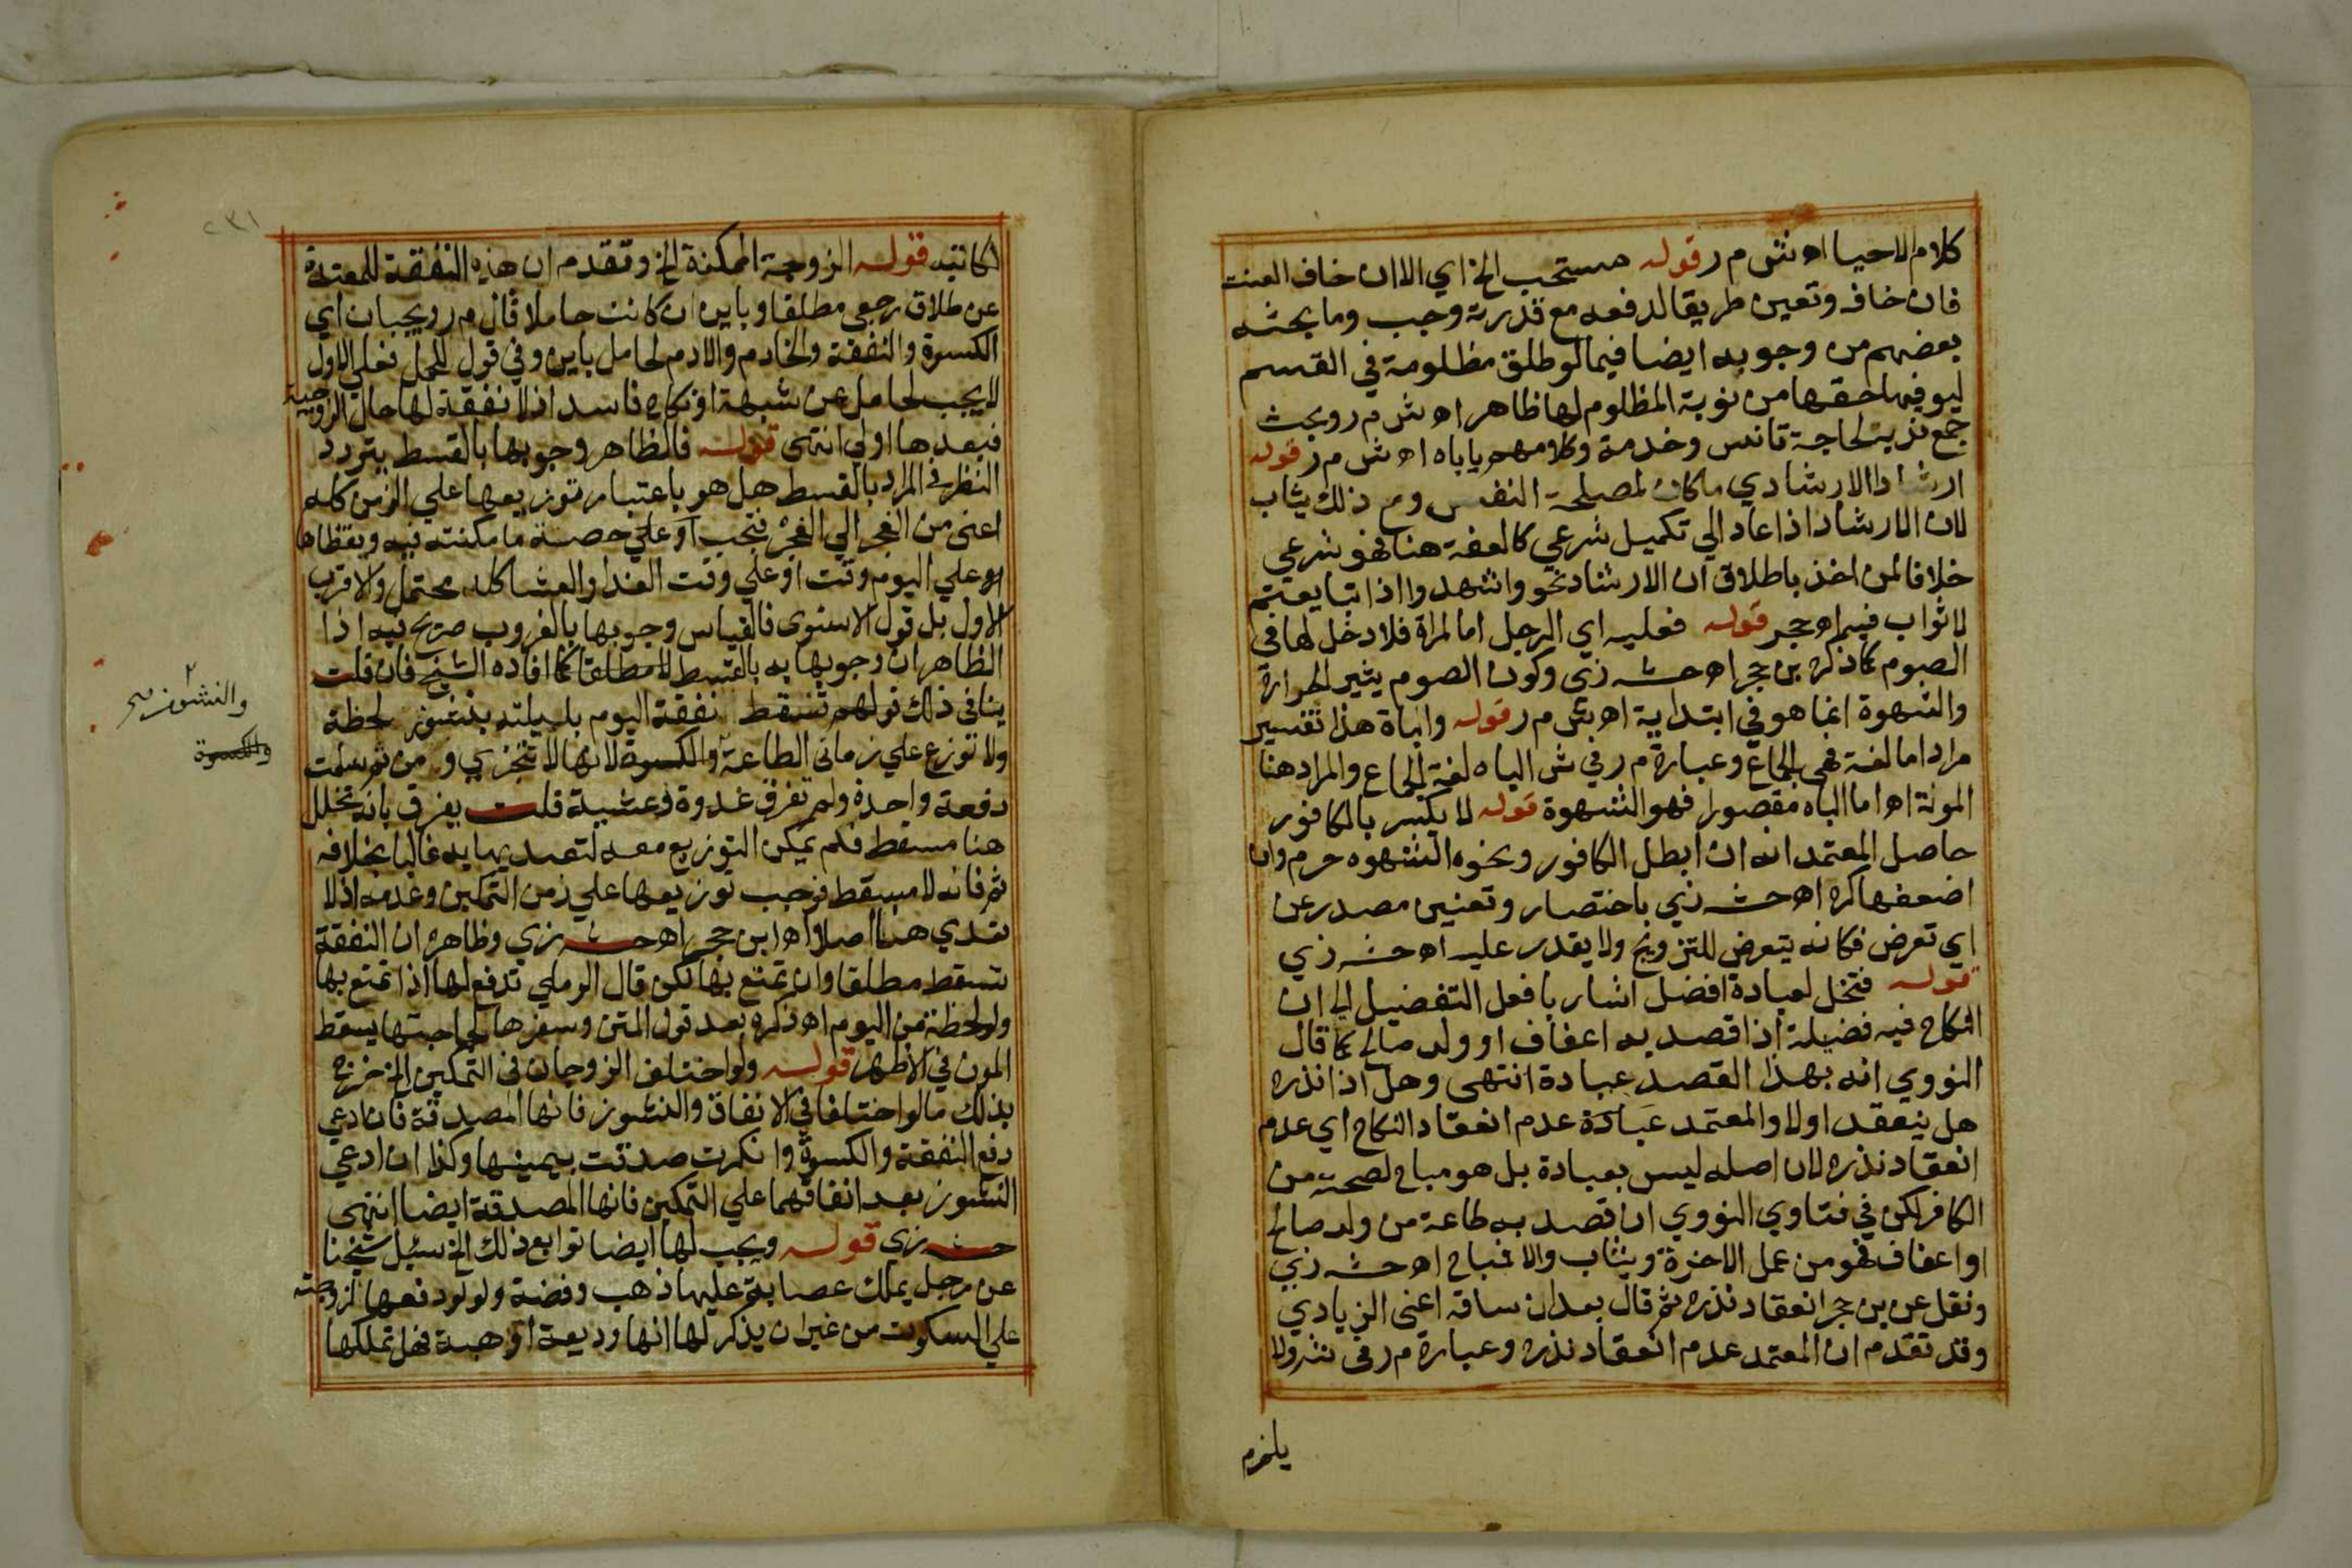 كلام الاحيا اه ش م ر قوله مستحب الخ اي الا ان خاف العنت
فان خافه وتعين طريقا لدفعه مع قدرته وجب وما بحثه
بعضهم من وجوبه ايضا فيما لو طلق مظلومة في القسم
ليوفيها حقها من نوبة المظلوم لها ظاهر اه ش م ر وبحث
جمع ندبه لحاجة تانس وخدمة وكلامهم ياباه اه ش م ر قوله
ارشادا الارشادي ماكان لمصلحة النفس ومع ذلك يثاب
لان الارشاد اذا عاد الي تكميل شرعي كالعفة هنا فهو شرعي
خلافا لمن اخذ باطلاق ان الارشاد نحو واشهدوا اذا تبايعتم
لا ثواب فيه اه حجر قوله فعليه اي الرجل اما المراة فلا دخل لها في
الصوم كما ذكره بن حجر اه حشـ زي وكون الصوم يثير الحرارة
والشهوة انما هو في ابتدايه اه ش م ر قوله وابناة هذا تفسير
مراد اما لغة فهي الجماع وعبارة م ر في ش الباه لغة الجماع والمراد هنا
المونة اه اما الباه مقصورا فهو الشهوة قوله لا يكسر بالكافور
حاصل المعتمد انه ان ابطل الكافور ونحوه الشهوه حرم وان
اضعفها كره اه حشـ زي باختصار وتعنين مصدر عن
اي تعرض فكانه يتعرض للتزويج ولا يقدر عليه اه حشـ زي
قوله فتخل لعبادة افضل اشار بافعل التفضيل الي ان
النكاح فيه فضيلة اذا قصد به اعفاف او ولد صالح كما قال
النووي انه بهذا القصد عبادة انتهى وهل اذا نذره
هل ينعقد اولا والمعتمد عبادة عدم انعقاد النكاح اي عدم
انعقاد نذره لان اصله ليس بعبادة بل هو مباح لصحته من
الكافر لكن في فتاوي النووي ان قصد به طاعة من ولد صالح
او اعفاف فهو من عمل الاخرة ويثاب والا فمباح اه حشـ زي
ونقل عن بن حجر انعقاد نذره ثم قال بعد ان ساقه اعنى الزيادي
وقد تقدم ان المعتمد عدم انعقاد نذره وعبارة م ر في ش ولا
يلزم
٢٣١
الكاتبه قوله الزوجة الممكنة الخ وتقدم ان هذه النفقة للمعتدة
عن طلاق رجعي مطلقا وباين ان كانت حاملا قال م ر ويجبان اي
الكسوة والنفقة والخادم والادم لحامل باين وفي قول للحمل فعلي الاول
لا يجب لحامل عن شبهة او نكاح فاسد اذ لا نفقة لها حال الزوجية
فبعدها اولي انتهى قوله فالظاهر وجوبها بالقسط يتردد
النظر في المراد بالقسط هل هو باعتبار توزيعها علي الزمن كله
اعنى من الفجر الي الفجر فتجب او علي حصة ما مكنته فيه ويقظاها
او علي اليوم وقت او علي وقت الغدا والعشا كله محتمل والاقرب
الاول بل قول الاسنوى فالقياس وجوبها بالغروب صريح فيه اذا
الظاهر ان وجوبها به بالقسط لا مطلقا كما افاده الشيخ فان قلت
ينافي ذلك قولهم تسقط نفقة اليوم بليلته بنشوز لحظة
ولا توزع علي زماني الطاعة والكسوة لانها لا تتجزي ومن ثم سلمت
دفعة واحدة ولم تفرق غدوة وعشية قلت يفرق بانه تخلل
هنا مسقط فلم يمكن التوزيع معه لتعديها به غالبا بخلافه
ثم فانه لا مسقط فوجب توزيعها علي زمن التمكين وعدمه اذ لا
تعدي هنا اصلا اه ابن حجر اه حشـ زي وظاهره ان النفقة
تسقط مطلقا وان تمتع بها لكن قال الرملي تدفع لها اذا تمتع بها
ولو لحظة من اليوم اه ذكره بعد قول المتن وسفرها لحاجتها يسقط
المون في الاظهر قوله ولو اختلف الزوجان في التمكين الخ خرج
بذلك ما لو اختلفا في الانفاق والنشوز فانها المصدقة فان ادعي
دفع النفقة والكسوة وانكرت صدقت بيمينها وكذا ان ادعي
النشوز بعد اتفاقهما علي التمكين فانها المصدقة ايضا انتهى
حشـ زي قوله ويجب لها ايضا توابع ذلك الخ سئيل شيخنا
عن رجل يملك عصابة عليها ذهب وفضة ولولو دفعها لزوجته
علي السكوت من غير ان يذكر لها انها وديعة او هبة فهل تملكها
٢
والنشوز صح
والكسوة